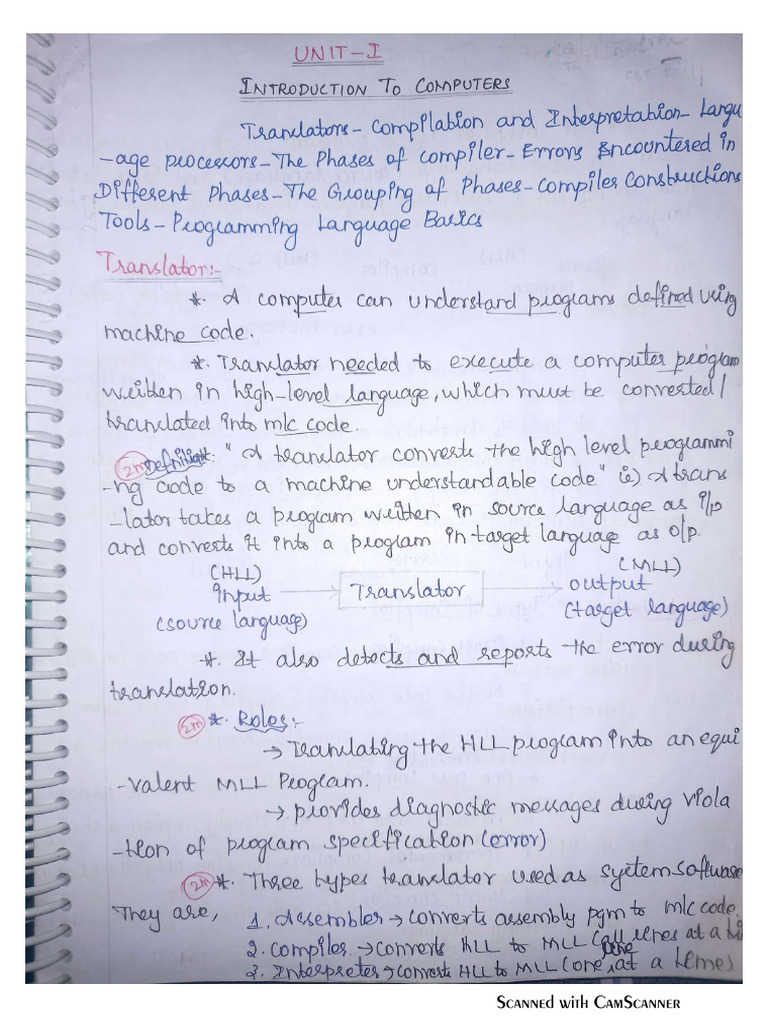 UNIT-I
INTRODUCTION TO COMPUTERS
Translators- Compilation and Interpretation- Langu
-age processors-The Phases of compiler-Errors Encountered in
Different Phases-The Grouping of Phases-Compiler Constructions
Tools-Programming Language Basics
Translator:-
*. A computer can understand programs defined using
machine code.
*. Translator needed to execute a computer program
written in high-level language, which must be converted/
translated into m/c code.
2m Definition: "A translator converts the high level programmi
-ng code to a machine understandable code" ie) A trans
-lator takes a program written in source language as i/p
and converts it into a program in target language as o/p.
(HLL) (MLL)
input Translator output
(source language) (target language)
*. It also detects and reports the error during
translation.
2m *. Roles:-
→ Translating the HLL program into an equi
-valent MLL Program.
→ provides diagnostic messages during viola
-tion of program specification (error)
2m *. Three types translator used as system software
They are, 1. Assembler → converts assembly pgm to m/c code.
2. Compiler. → converts HLL to MLL (all lines at a
3. Interpreter → converts HLL to MLL (one line at a times
Scanned with CamScanner